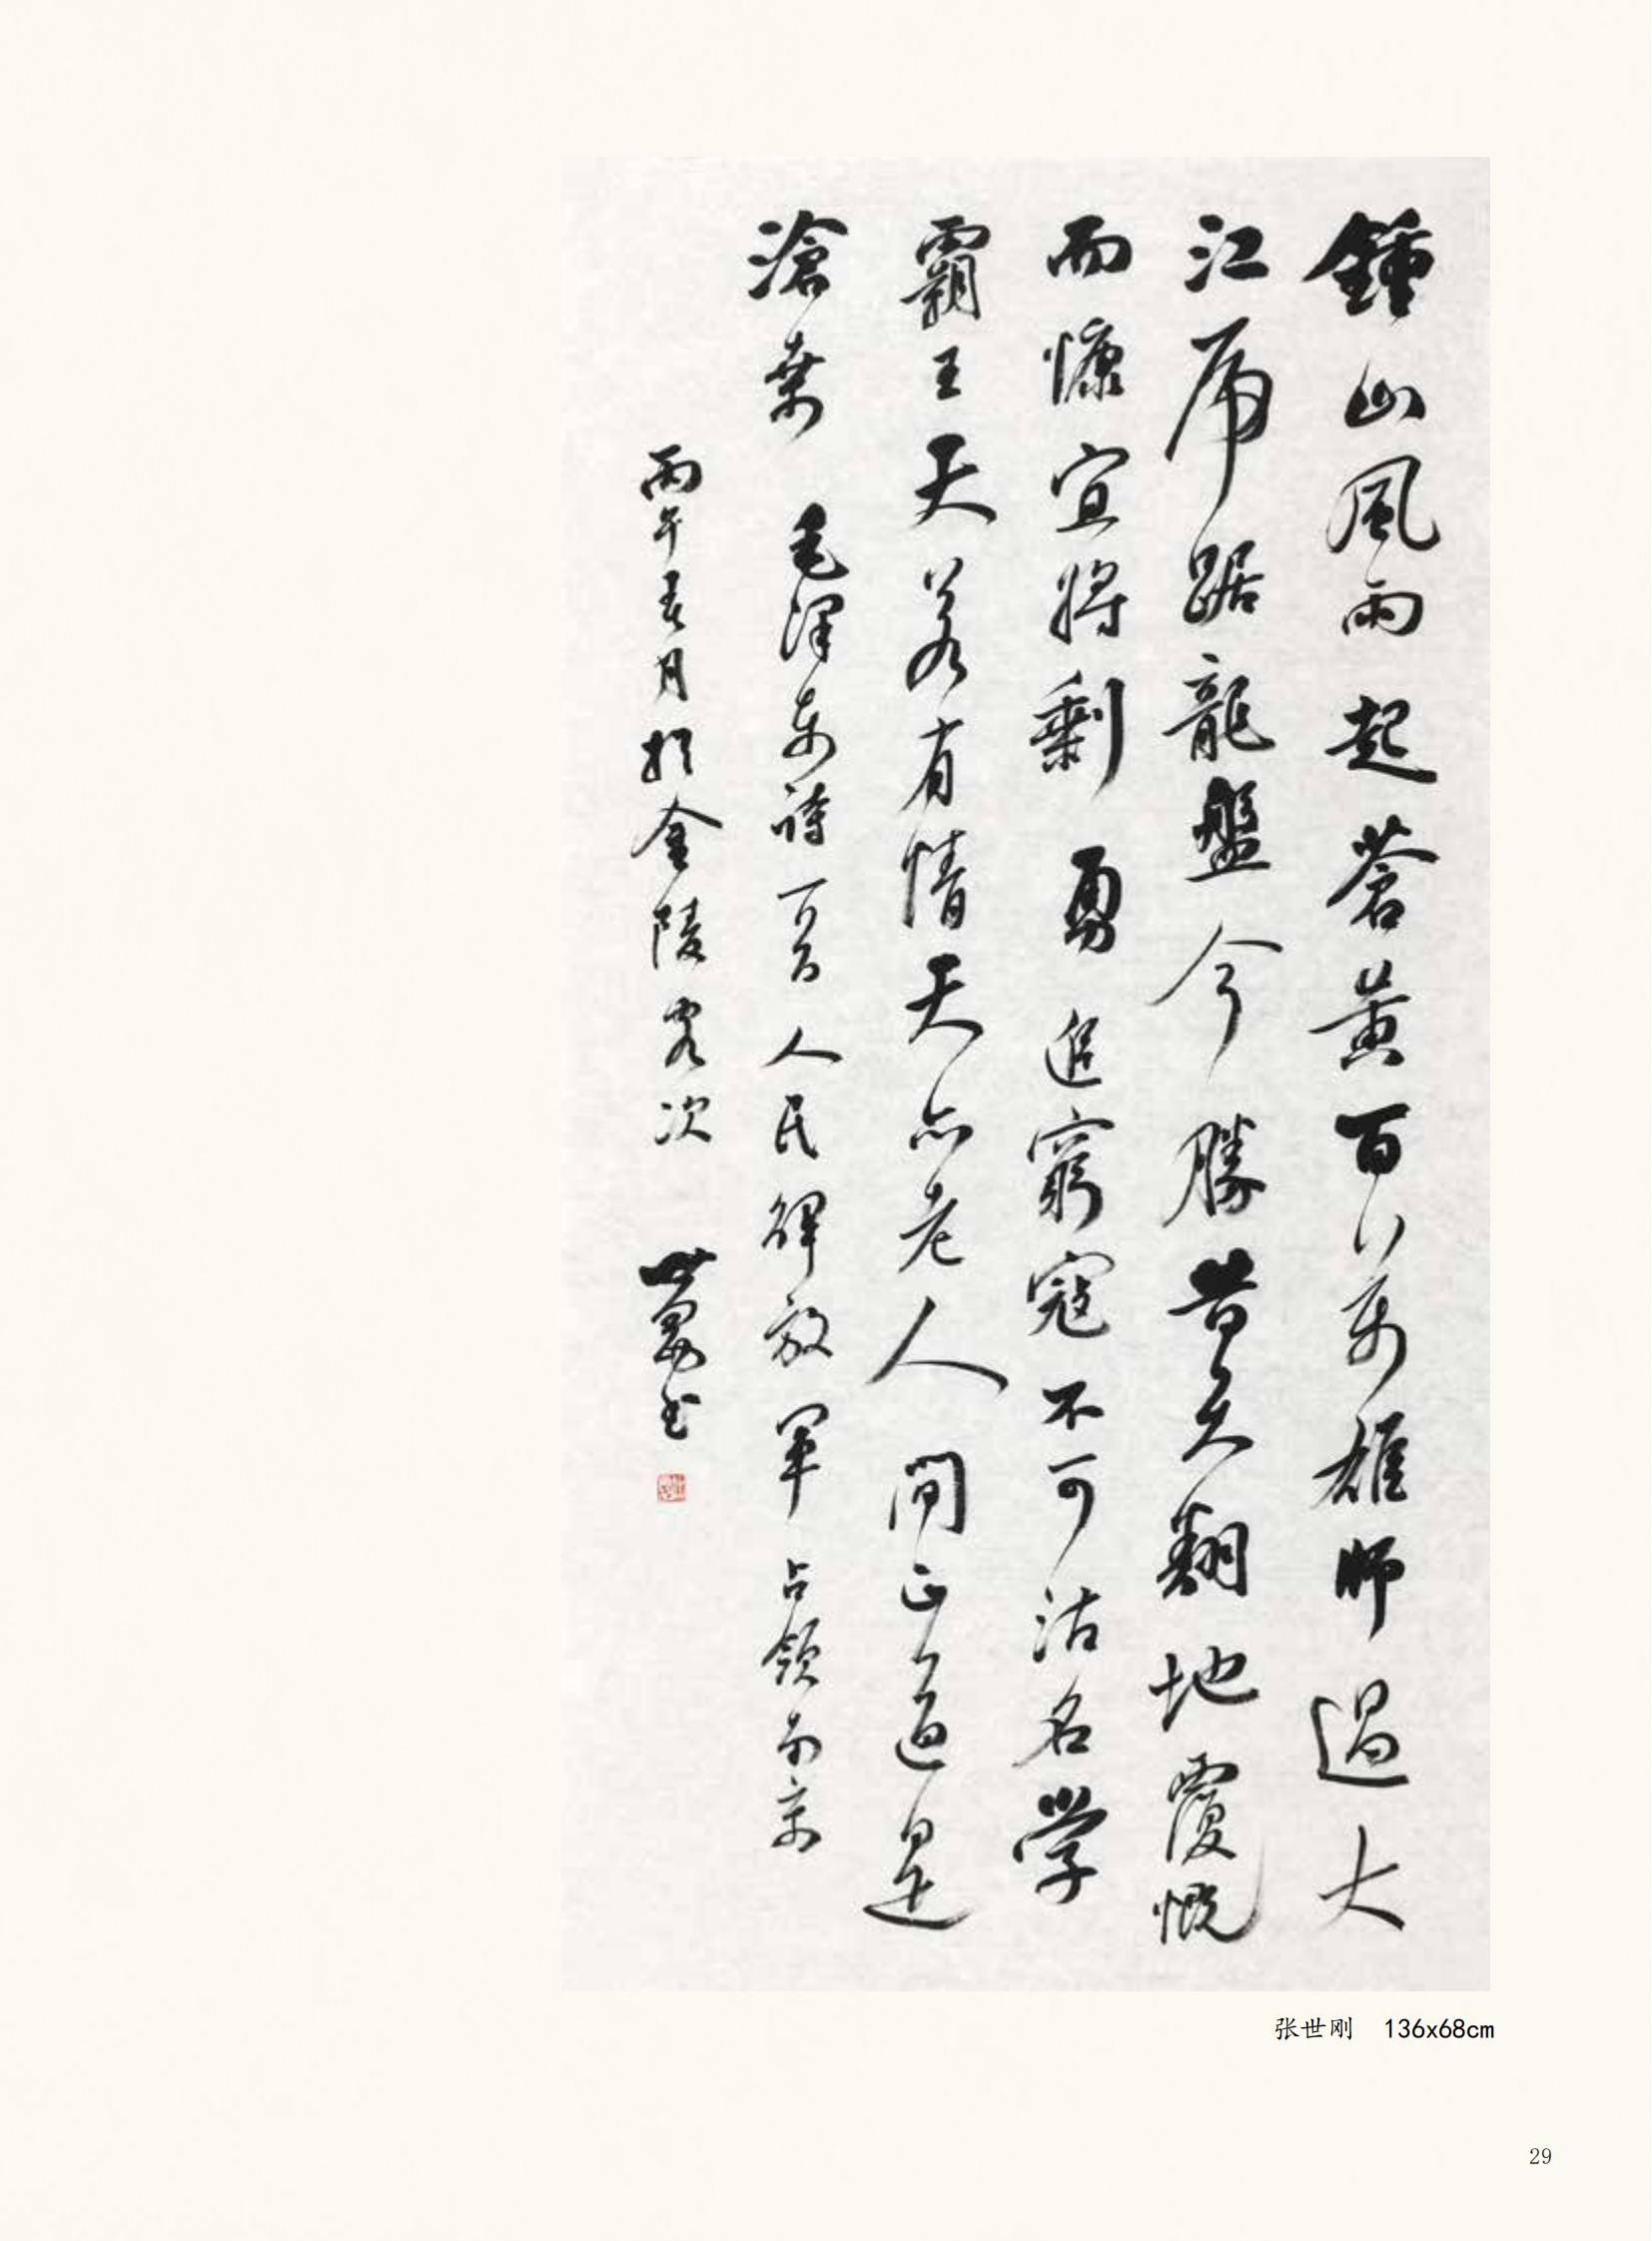 鍾山風雨起蒼黃百萬雄師過大
江虎踞龍盤今勝昔天翻地覆慨
而慷宜將剩勇追窮寇不可沽名学
霸王天若有情天亦老人間正道是
滄桑 毛澤東詩一首人民解放軍占領南京
丙午月於金陵客次 世书
张世刚 136x68cm
29